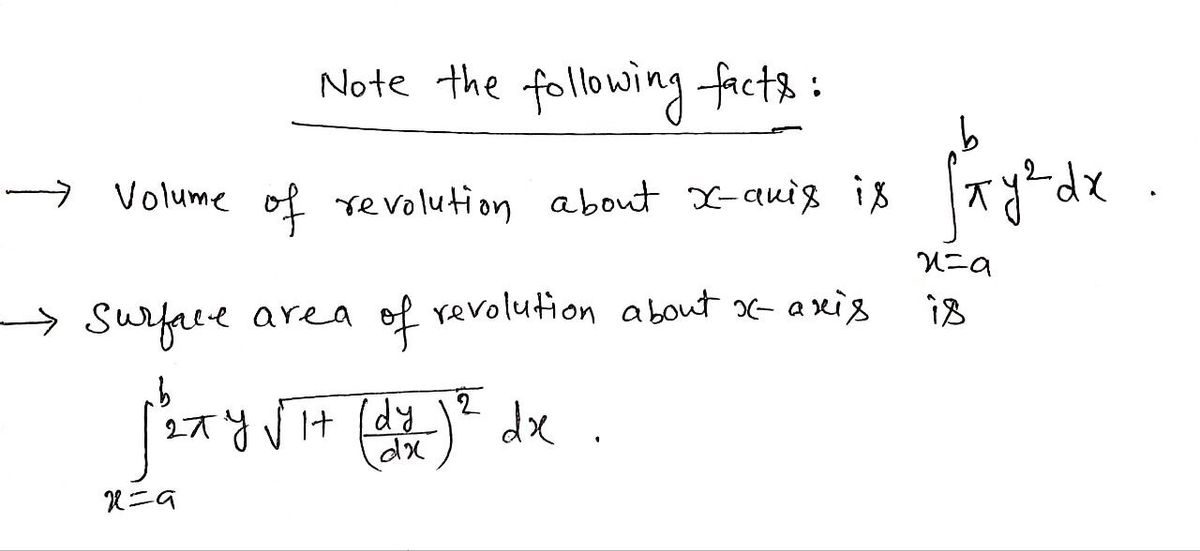 Note the following facts:
→ Volume of revolution about x-axis is ∫_{x=a}^{b} π y² dx .
→ Surface area of revolution about x-axis is
∫_{x=a}^{b} 2π y √(1+ (dy/dx)²) dx .